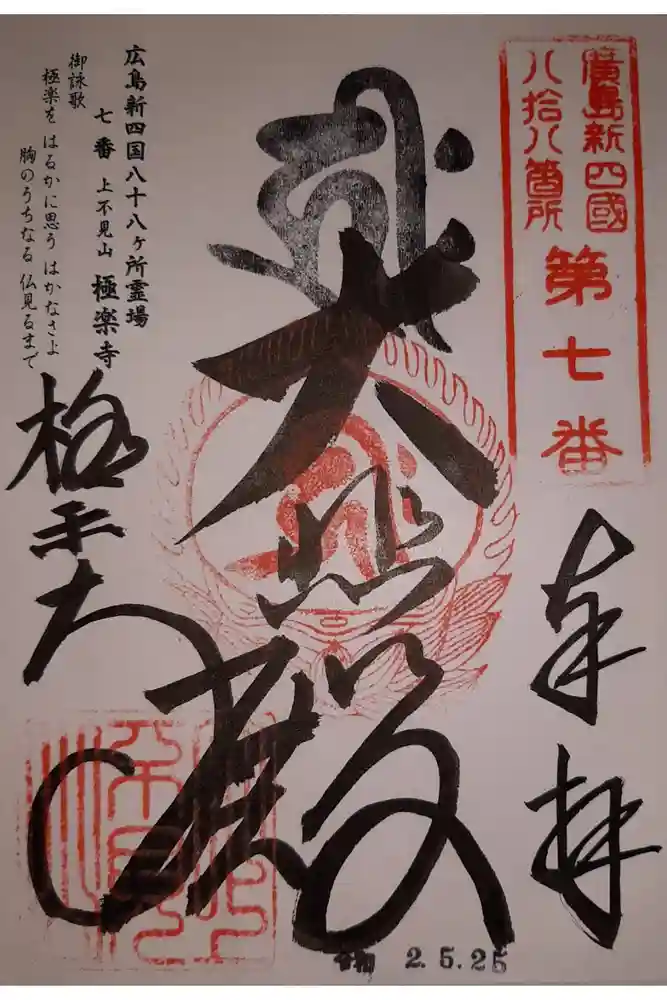 廣島新四國
八拾八箇所
第七番
奉拝
大悲殿
広島新四国八十八ヶ所霊場
七番 上不見山 極楽寺
御詠歌
極楽を はるかに思う はかなさよ
胸のうちなる 仏見るまで
極楽寺
令和 2.5.25